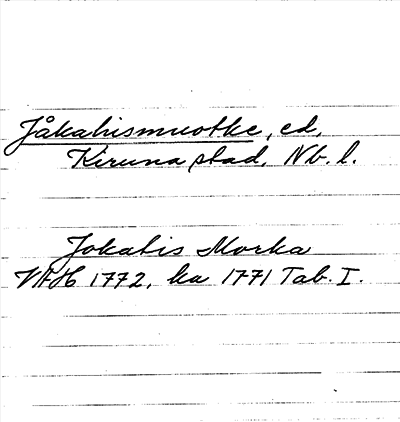 Jåkahismuotke, ed,
Kiruna stad, Nb. l.
Jokahis Morka
VFH 1772, ka 1771 Tab. I.